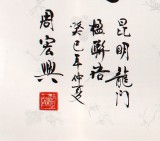 昆明龍门
楹聯语
癸巳年仲夏
周宏興